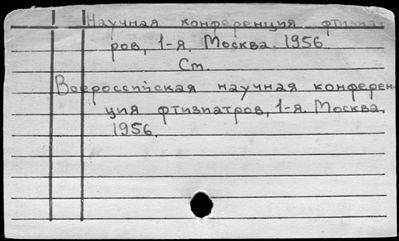 Научная конференция фтизиат-
ров, 1-я. Москва. 1956
См.
Всероссийская научная конферен-
ция фтизиатров, 1-я. Москва,
1956.